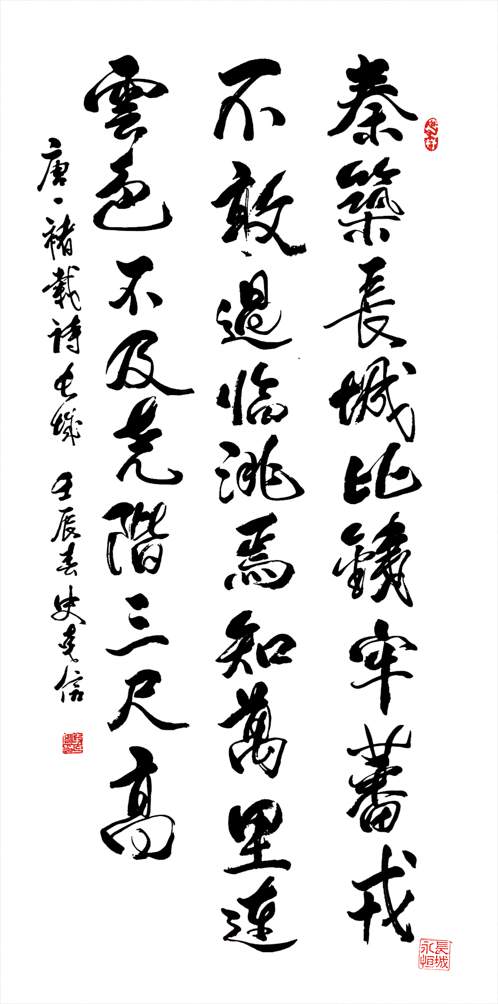 秦築長城比鐵牢蕃戎
不敢過临洮焉知萬里連
雲色不及尧階三尺高
唐、褚載詩長城 壬辰春史克信
長城永恒